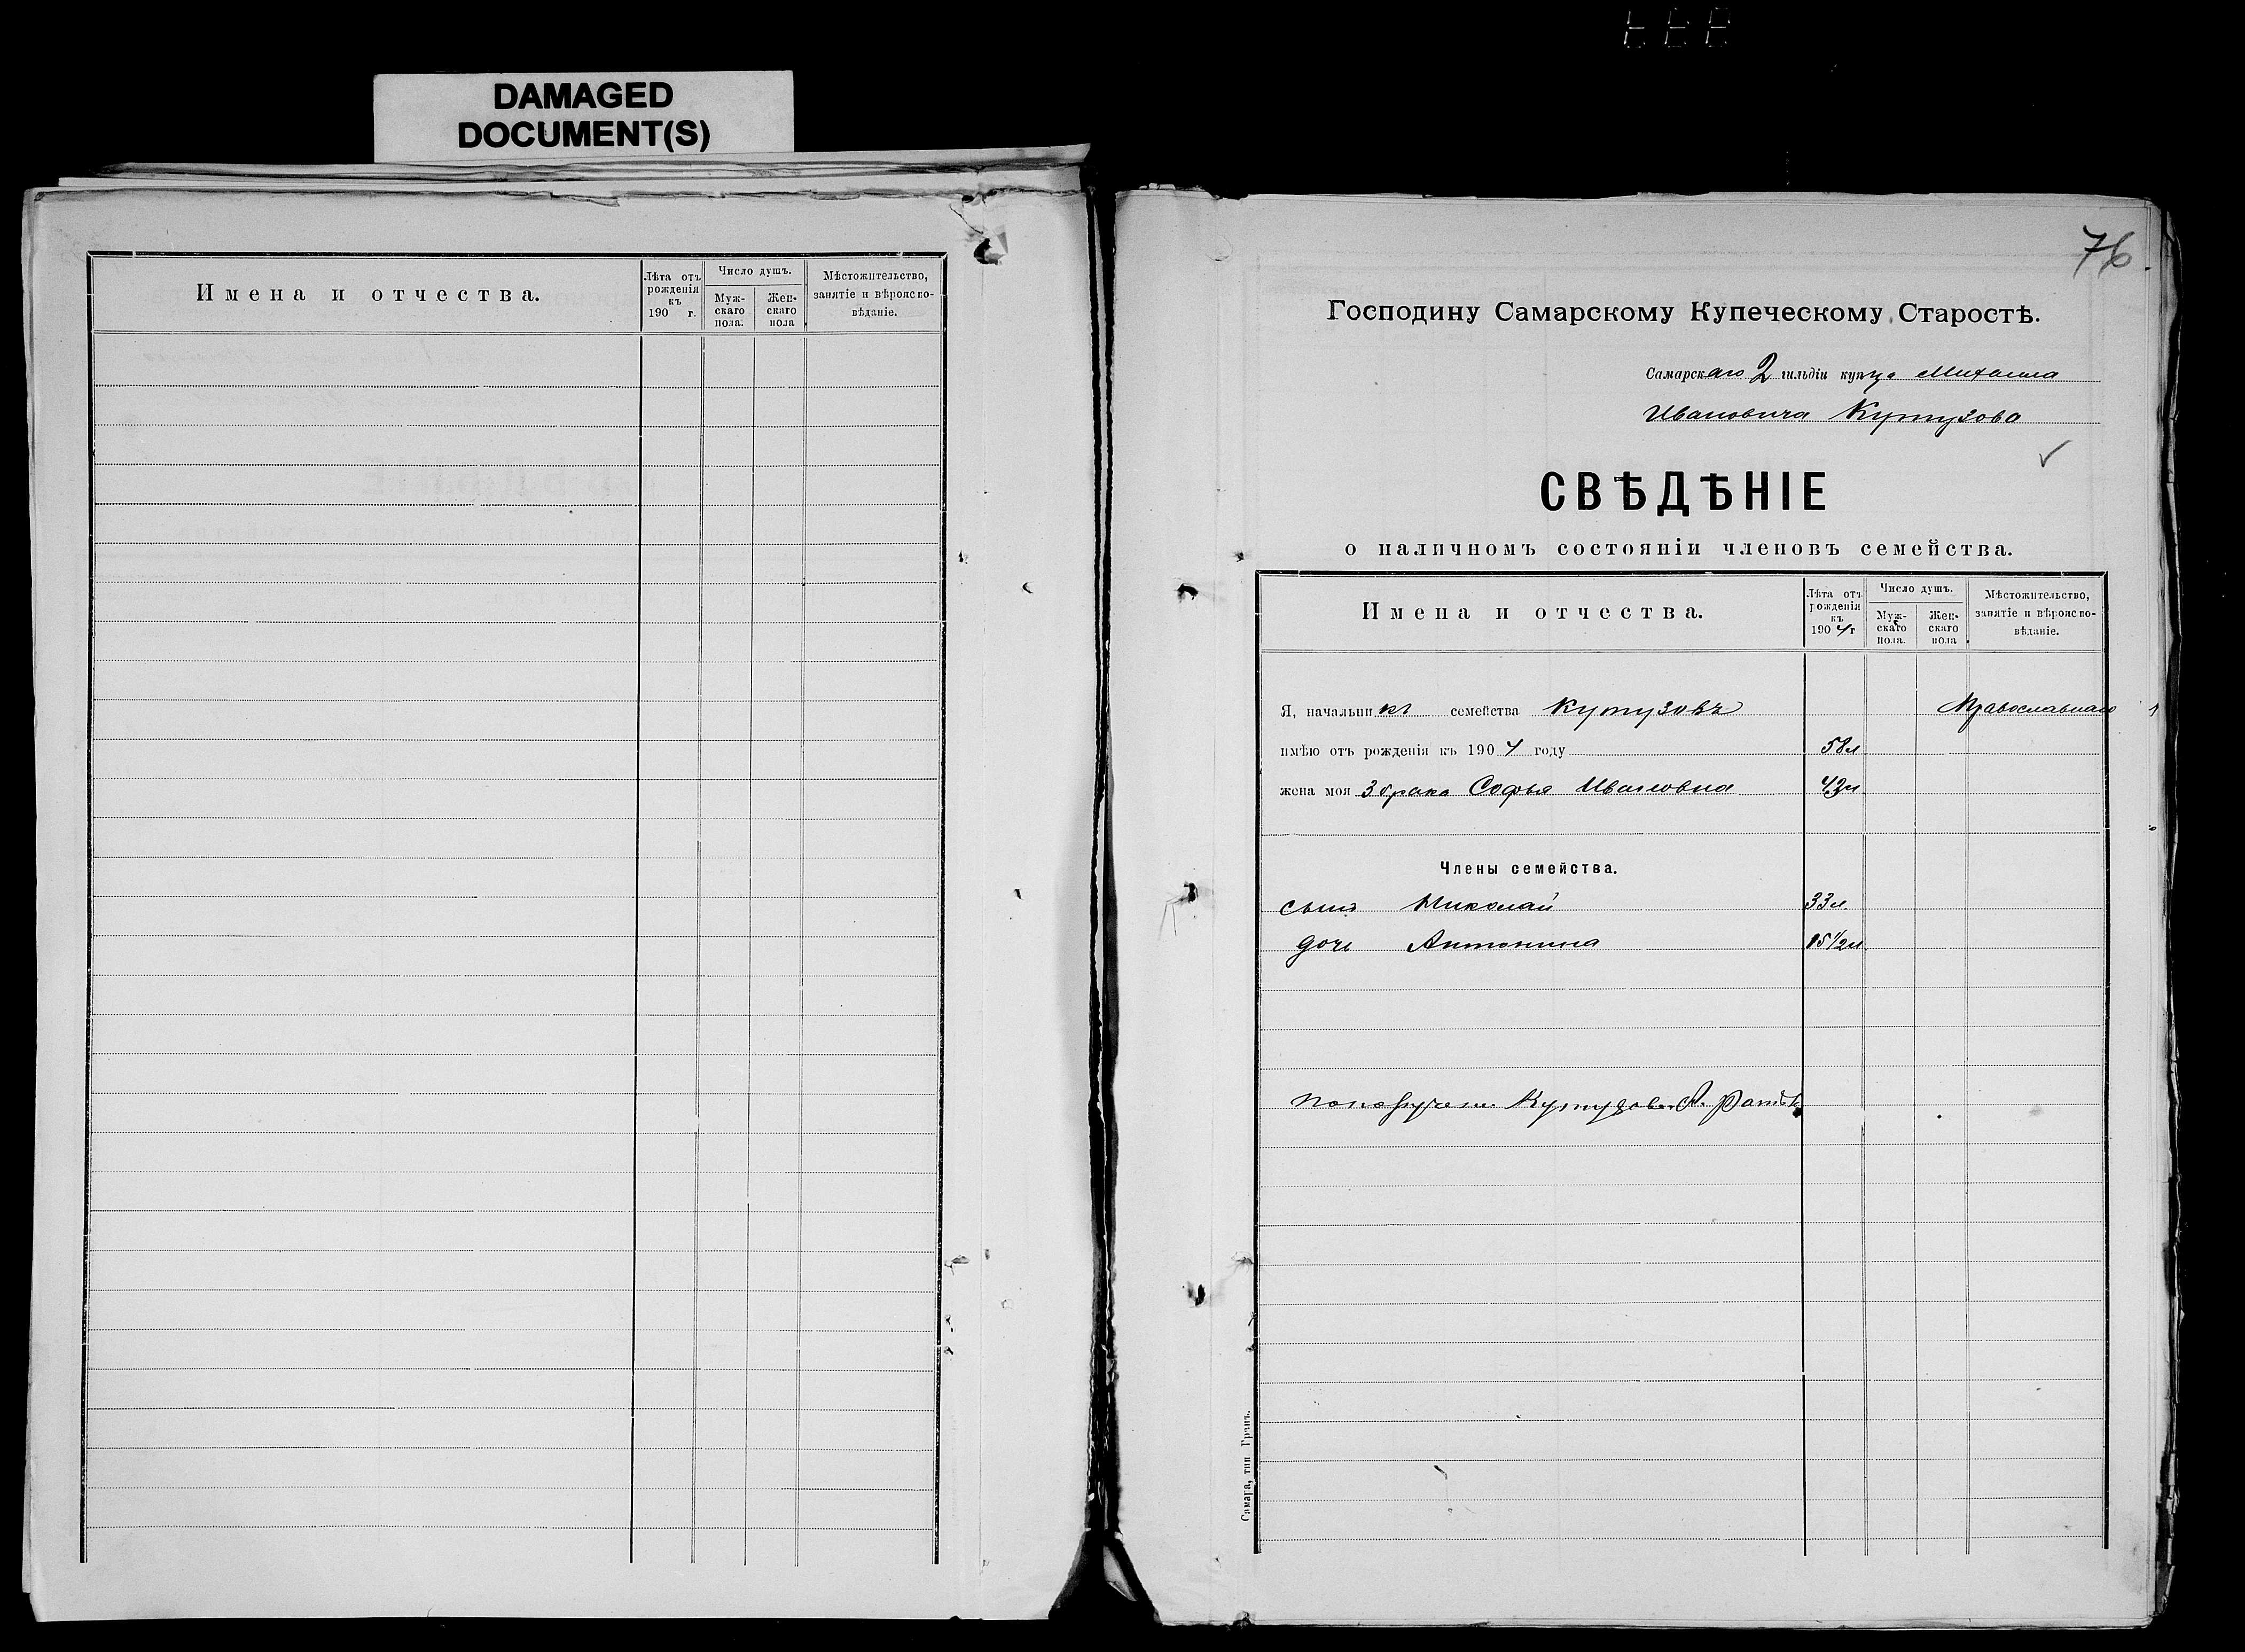 DAMAGED
DOCUMENT(S)
Имена и отчества.
Лѣта отъ рожденія къ 190 г.
Число душъ.
Муж-скаго пола.
Жен-скаго пола
Мѣстожительство, занятіе и вѣроиспо-вѣданіе.
76
Господину Самарскому Купеческому Старостѣ.
Самарскаго 2 гильдіи купца Михаила
Ивановича Кутузова
СВѢДѢНІЕ
о наличномъ состояніи членовъ семейства.
Имена и отчества.
Лѣта отъ рожденія къ 1904 г
Число душъ.
Муж-скаго пола.
Жен-скаго пола
Мѣстожительство, занятіе и вѣроиспо-вѣданіе.
Я, начальникъ семейства Кутузовъ Православнаго
имѣю отъ рожденія къ 1904 году 58л
жена моя 3 брака Софья Ивановна 42л
Члены семейства.
сынъ Николай 33л.
дочь Антонина 15 1/2л
Кутузова А.
Самара, тип. Гранъ.